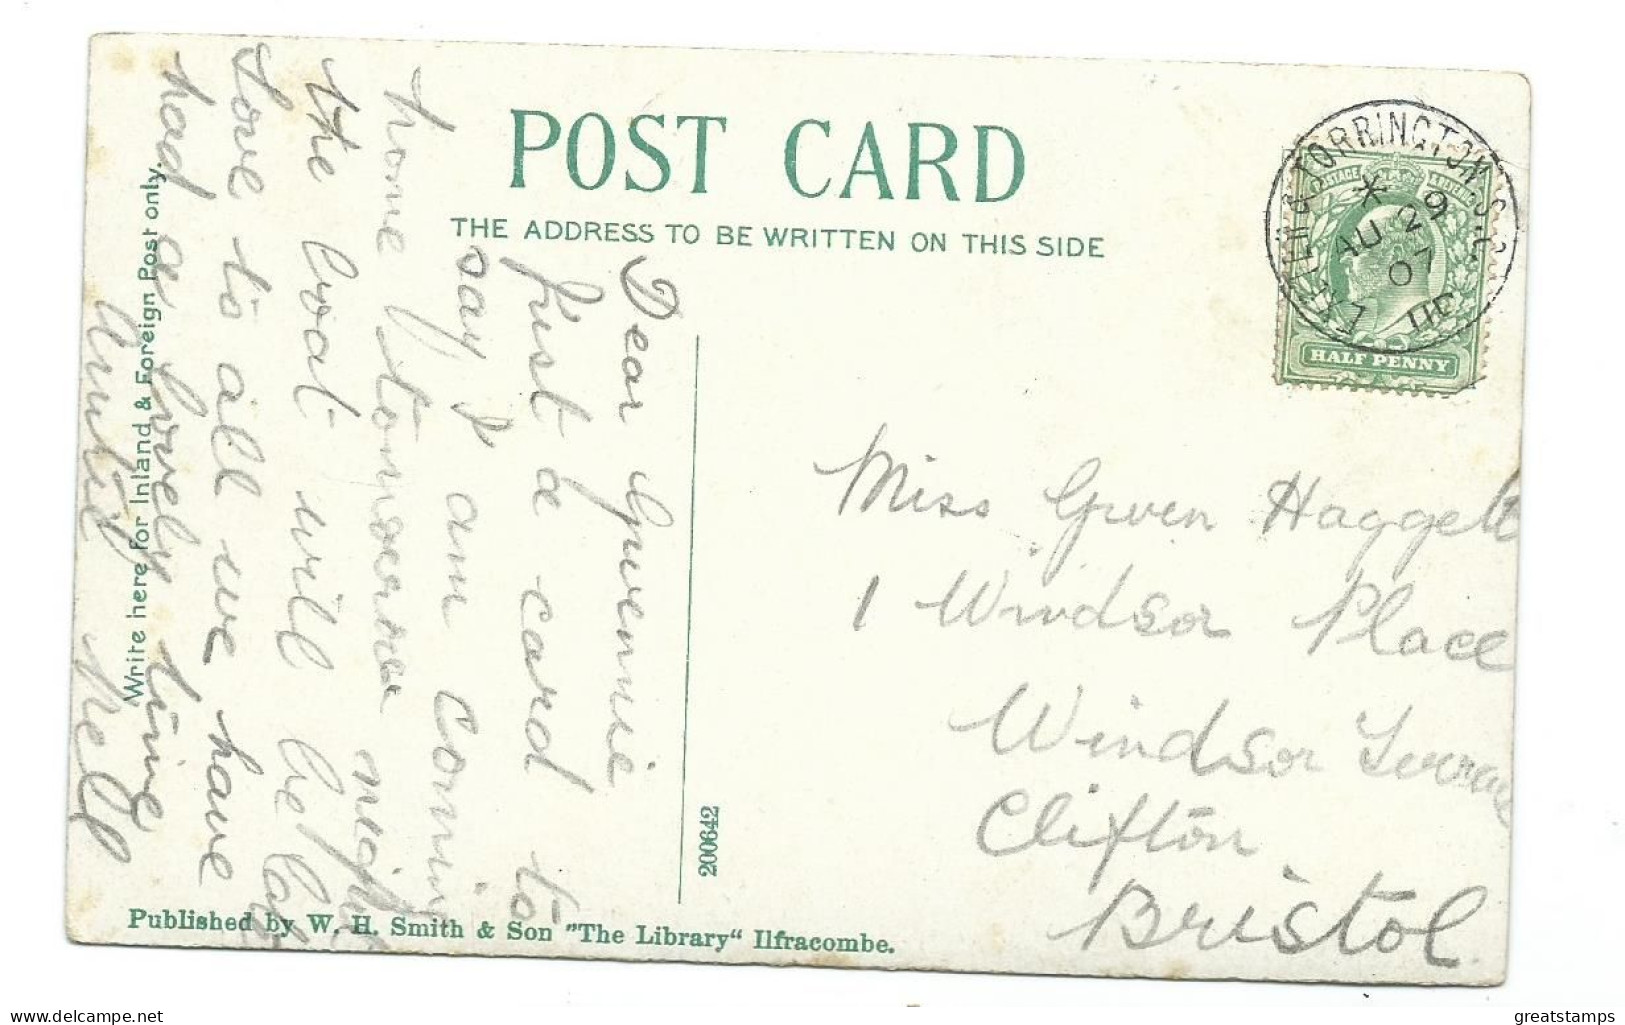 POST CARD
THE ADDRESS TO BE WRITTEN ON THIS SIDE
Write here for Inland & Foreign Post only.
Dear Gwennie
Just a card to
say I am coming
home tomorrow
the boat will be
Love to all we have
had a lovely time
Auntie Nell
EXETER & TORRINGTON S.C.
* 9
AU 2
07
UP
POSTAGE
HALF PENNY
Miss Gwen Haggett
1 Windsor Place
Windsor Terrace
Clifton
Bristol.
200642
Published by W. H. Smith & Son "The Library" Ilfracombe.
Delcampe.net
greatstamps